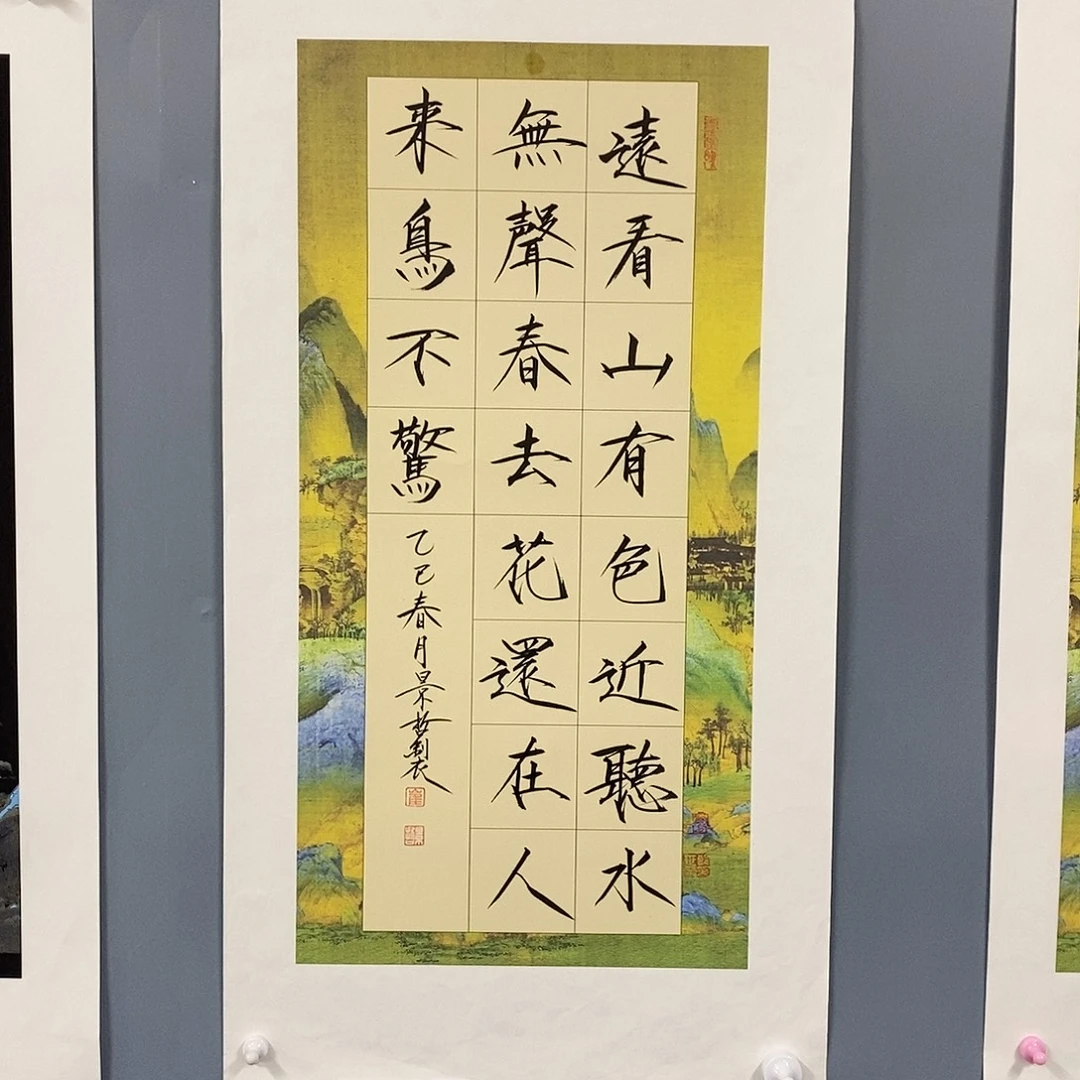 遠看山有色近聽水
無聲春去花還在人
来鳥不驚
乙巳春月景